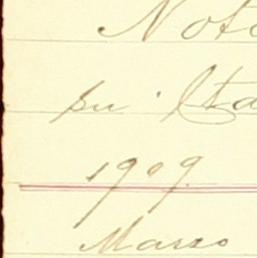 Note
su · Sta
1909.
Marzo